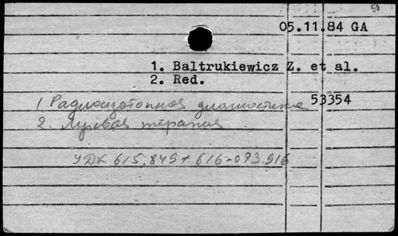 05.11.84 GA
1. Baltrukiewicz Z. et al.
2. Red.
53354
1. Радиоизотопная диагностика
2. Лучевая терапия
УДК 615.849+616-073.916